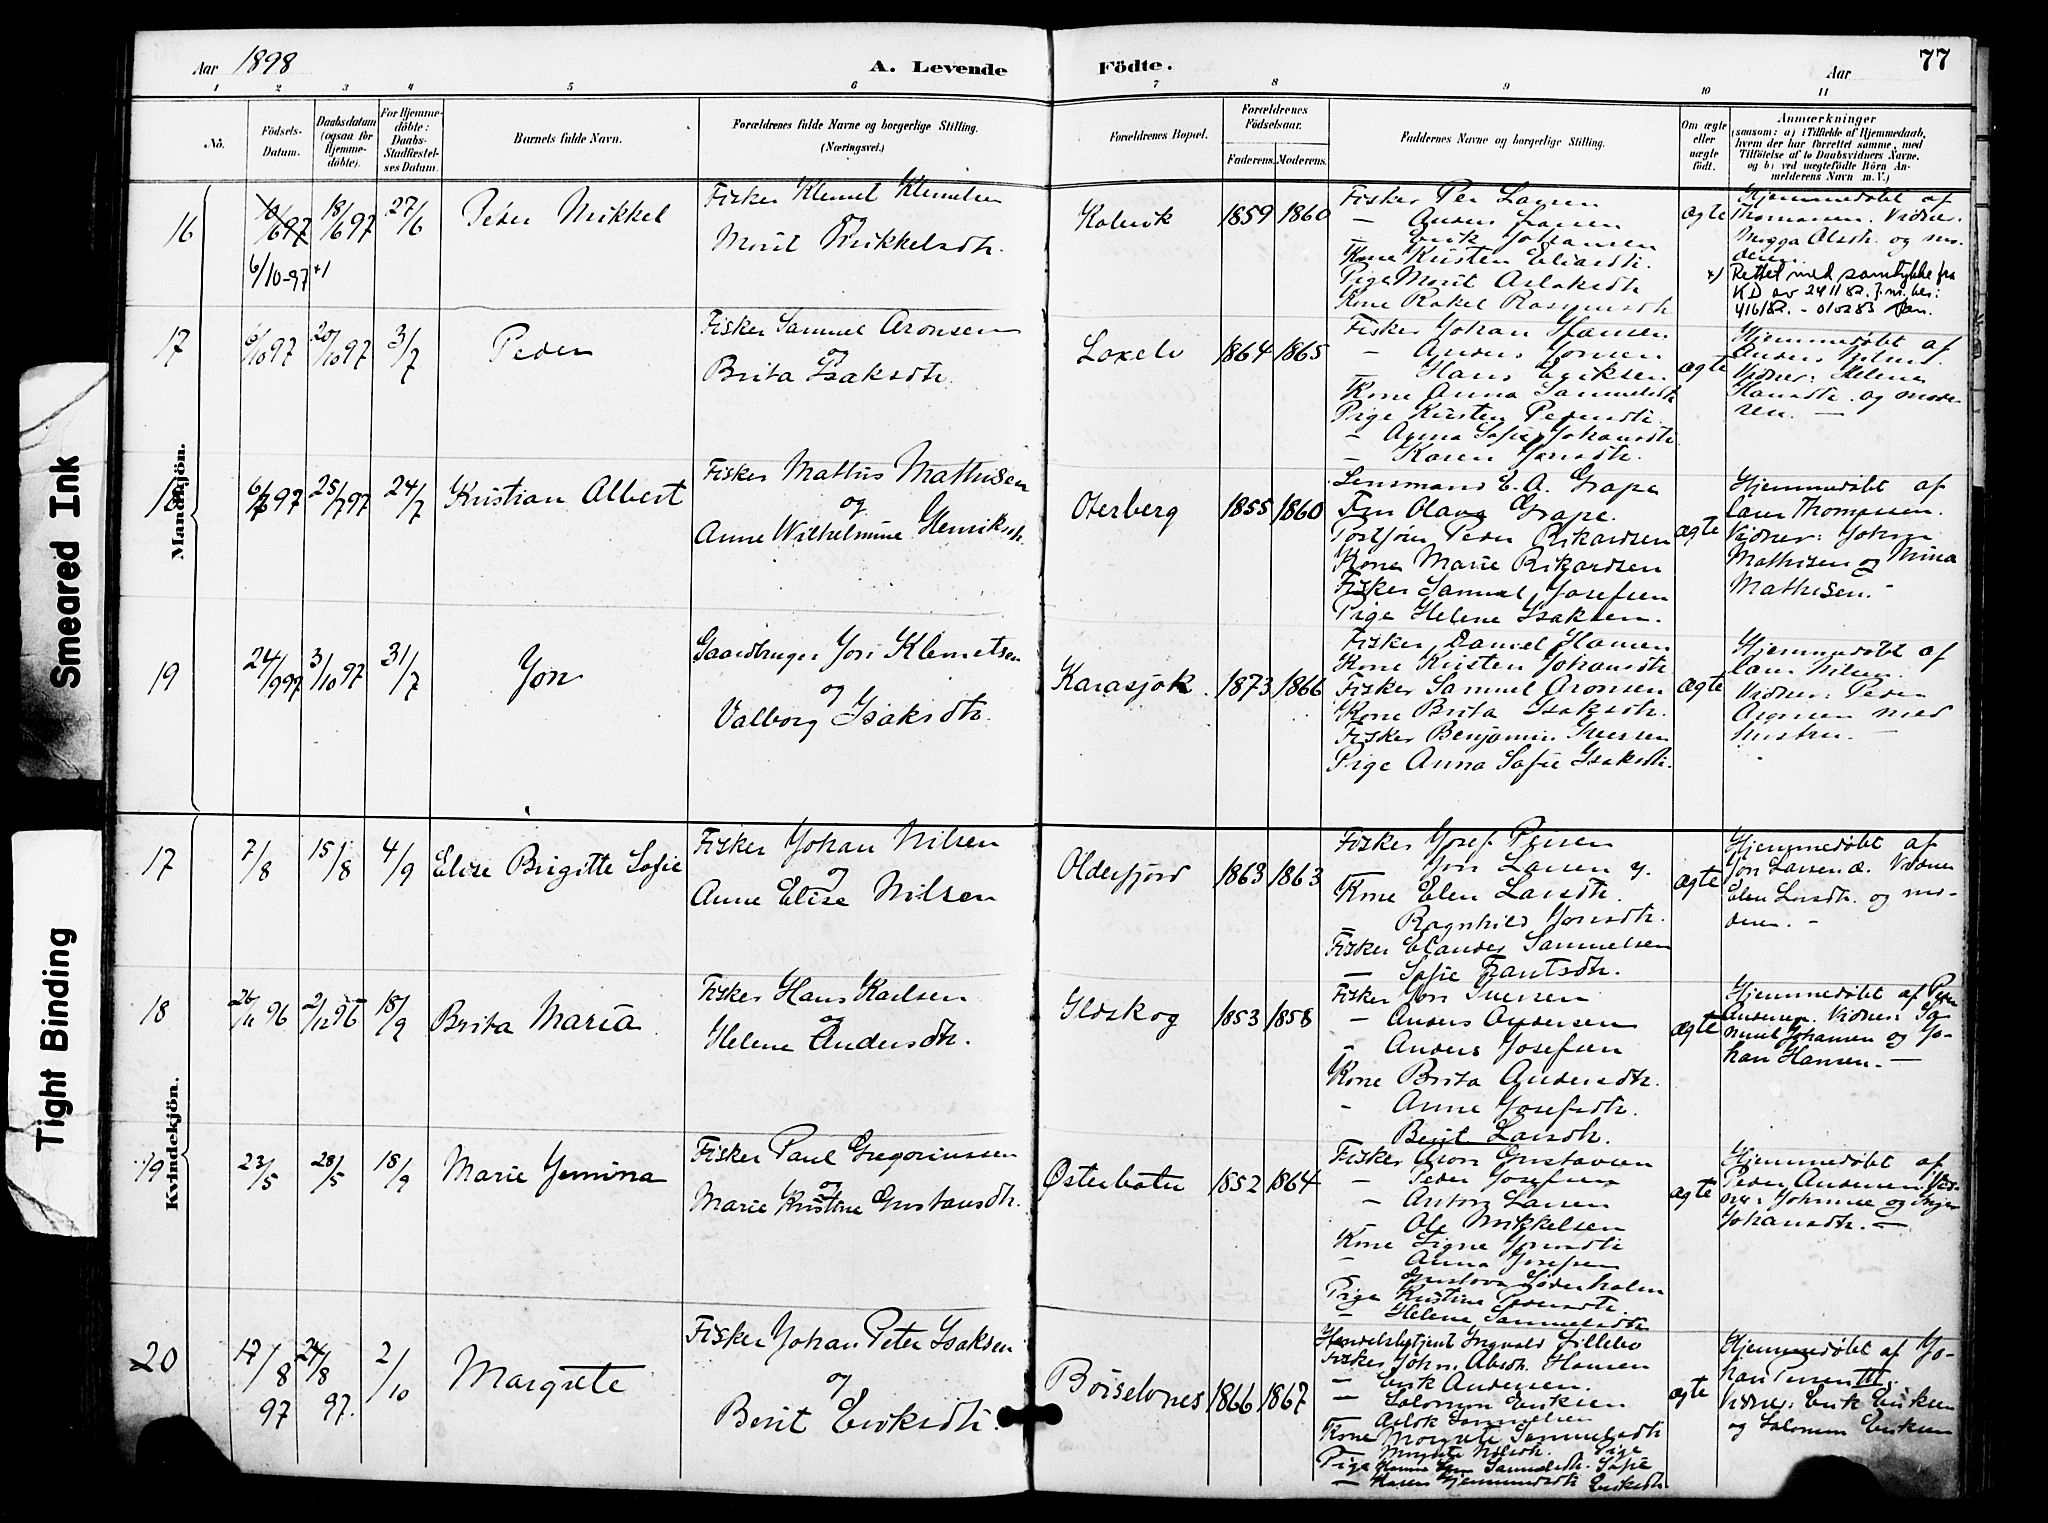 Smeared Ink
Tight Binding
Aar 1898
A. Levende
Födte.
Aar
77
1 2 3 4 5 6 7 8 9 10 11
No.
Födsels-
Datum.
Daabsdatum
(ogsaa for
Hjemme-
döbte).
For Hjemme-
döbte:
Daabs-
Stadfæstel-
ses Datum.
Barnets fulde Navn.
Forældrenes fulde Navne og borgerlige Stilling.
(Næringsvei.)
Forældrenes Bopæl.
Forældrenes
Födselsaar.
Faderens.
Moderens.
Faddernes Navne og borgerlige Stilling.
Om ægte
eller
uægte
født.
Anmærkninger
(saasom: a) i Tilfælde af Hjemmedaab,
hvem der har forrettet samme, med
Tilföielse af to Daabsvidners Navne.
og b) ved uægtefödte Börn An-
melderens Navn m. V.)
Mandkjön.
16
10/6 97
6/10-97 x)
18/6 97
27/6
Peder Mikkel
Fisker Klemet Klemetsen
og
Marit Mikkelsdtr.
Kolvik
1859
1860
Fisker Per Larsen
— Anders Larsen
— Erik Johansen
Kone Kirsten Eliasdtr.
Pige Marit Aslaksdtr
Kone Rakel Rasmusdtr.
ægte
Hjemmedøbt af
Thomassen. Vidner:
Magga Olsdtr. og mo-
deren.
x) Rettet med samtykke fra
KD av 241182. J.nr. ber:
416/82. - 010283
17
6/10 97
20/10 97
3/7
Peder
Fisker Samuel Aronsen
og
Brita Isaksdtr.
Laxelv
1864
1865
Fisker Johan Hansen
— Anders Jonsen
— Hans Eriksen
Kone Anna Samuelsdtr
Pige Kirsten Pedersdtr.
— Anna Sofie Johansdtr
— Karen Jonsdtr.
ægte
Hjemmedøbt af
Anders
Vidner: Helena
Hansdtr. og mode-
ren. —
18
6/7 97
25/7 97
24/7
Kristian Albert
Fisker Mathis Mathisen
og
Anne Wilhelmine Henriksdtr.
Oterberg
1855
1860
Lensmand E. A. Grape
Fru Olava Grape.
Peder Rikardsen
Kone Marie Rikardsen
Fisker Samuel Josefsen
Pige Helene Isaksen.
ægte
Hjemmedøbt af
Lars Thomassen.
Vidner: Johan
Mathisen og Mina
Mathisen. -
19
24/9 97
3/10 97
31/7
Jon
Gaardbruger Jon Klemetsen
og
Valborg Isaksdtr.
Karasjok.
1873
1866
Fisker Daniel Hansen
Kone Kirsten Johansdtr
Fisker Samuel Aronsen
Kone Brita Isaksdtr.
Fisker Benjamin Iversen
Pige Anna Sofie Isaksdtr.
ægte
Hjemmedøbt af
Lars Nilsen.
Vidner: Peder
Aronsen med
hustru. —
Kvindekjön.
17
7/8
15/8
4/9
Elise Brigitte Sofie
Fisker Johan Nilsen
og
Anne Elise Nilsen
Olderfjord
1863
1863
Fisker Josef Persen
Jon Larsen y.
Kone Elen Larsdtr.
Ragnhild Jonsdtr.
Fisker Elander Samuelsen
— Sofie Frantsdtr.
ægte
Hjemmedøbt af
Jon Larsen æ. Vidner
Elen Larsdtr. og mo-
deren. -
18
26/11 96
2/12 96
18/9
Brita Maria
Fisker Hans Karlsen
og
Helene Andersdtr.
Ildskog
1853
1858
Fisker Jon Iversen
— Anders Andersen
— Anders Josefsen
Kone Brita Andersdtr.
— Anne Josefsdtr.
Berit Larsdtr.
ægte
Hjemmedøbt af Peder
Andersen. Vidner: Sa-
muel Johansen og Jo-
han Hansen. —
19
23/5
28/5
18/9
Marie Jemina
Fisker Paul Gregoriussen
og
Marie Kristine Gustavsdtr.
Østerbotn
1852
1864
Fisker Aron Gustavsen
— Peder Josefsen
— Anton Larsen
— Ole Mikkelsen
Kone Signe Jonsdtr
— Anna Josefsen
Gustava Søderholm
Pige Kristine Pedersdtr.
— Helene Samuelsdtr
ægte
Hjemmedøbt af
Peder Andersen. Vid-
ner: Johanne og Inger
Johansdtr. —
20
17/8
97
24/8
97.
2/10
Margrete
Fisker Johan Peter Isaksen
og
Berit Eriksdtr.
Børselvnes
1866
1867
Handelsbetjent Ingvald Lillebo
Fisker John Abrah. Hansen
— Erik Andersen.
— Salomon Eriksen
— Aslak Samuelsen
Kone Margrete Samuelsdtr
Margrete Nilsdtr. Pige
Pige Hanna Samuelsdtr. Sofie
— Karen Hjemmundsdtr Eriksdtr
ægte
Hjemmedøbt af Jo-
han Persen III.
Vidner: Erik Eriksen
og Salomon Eriksen